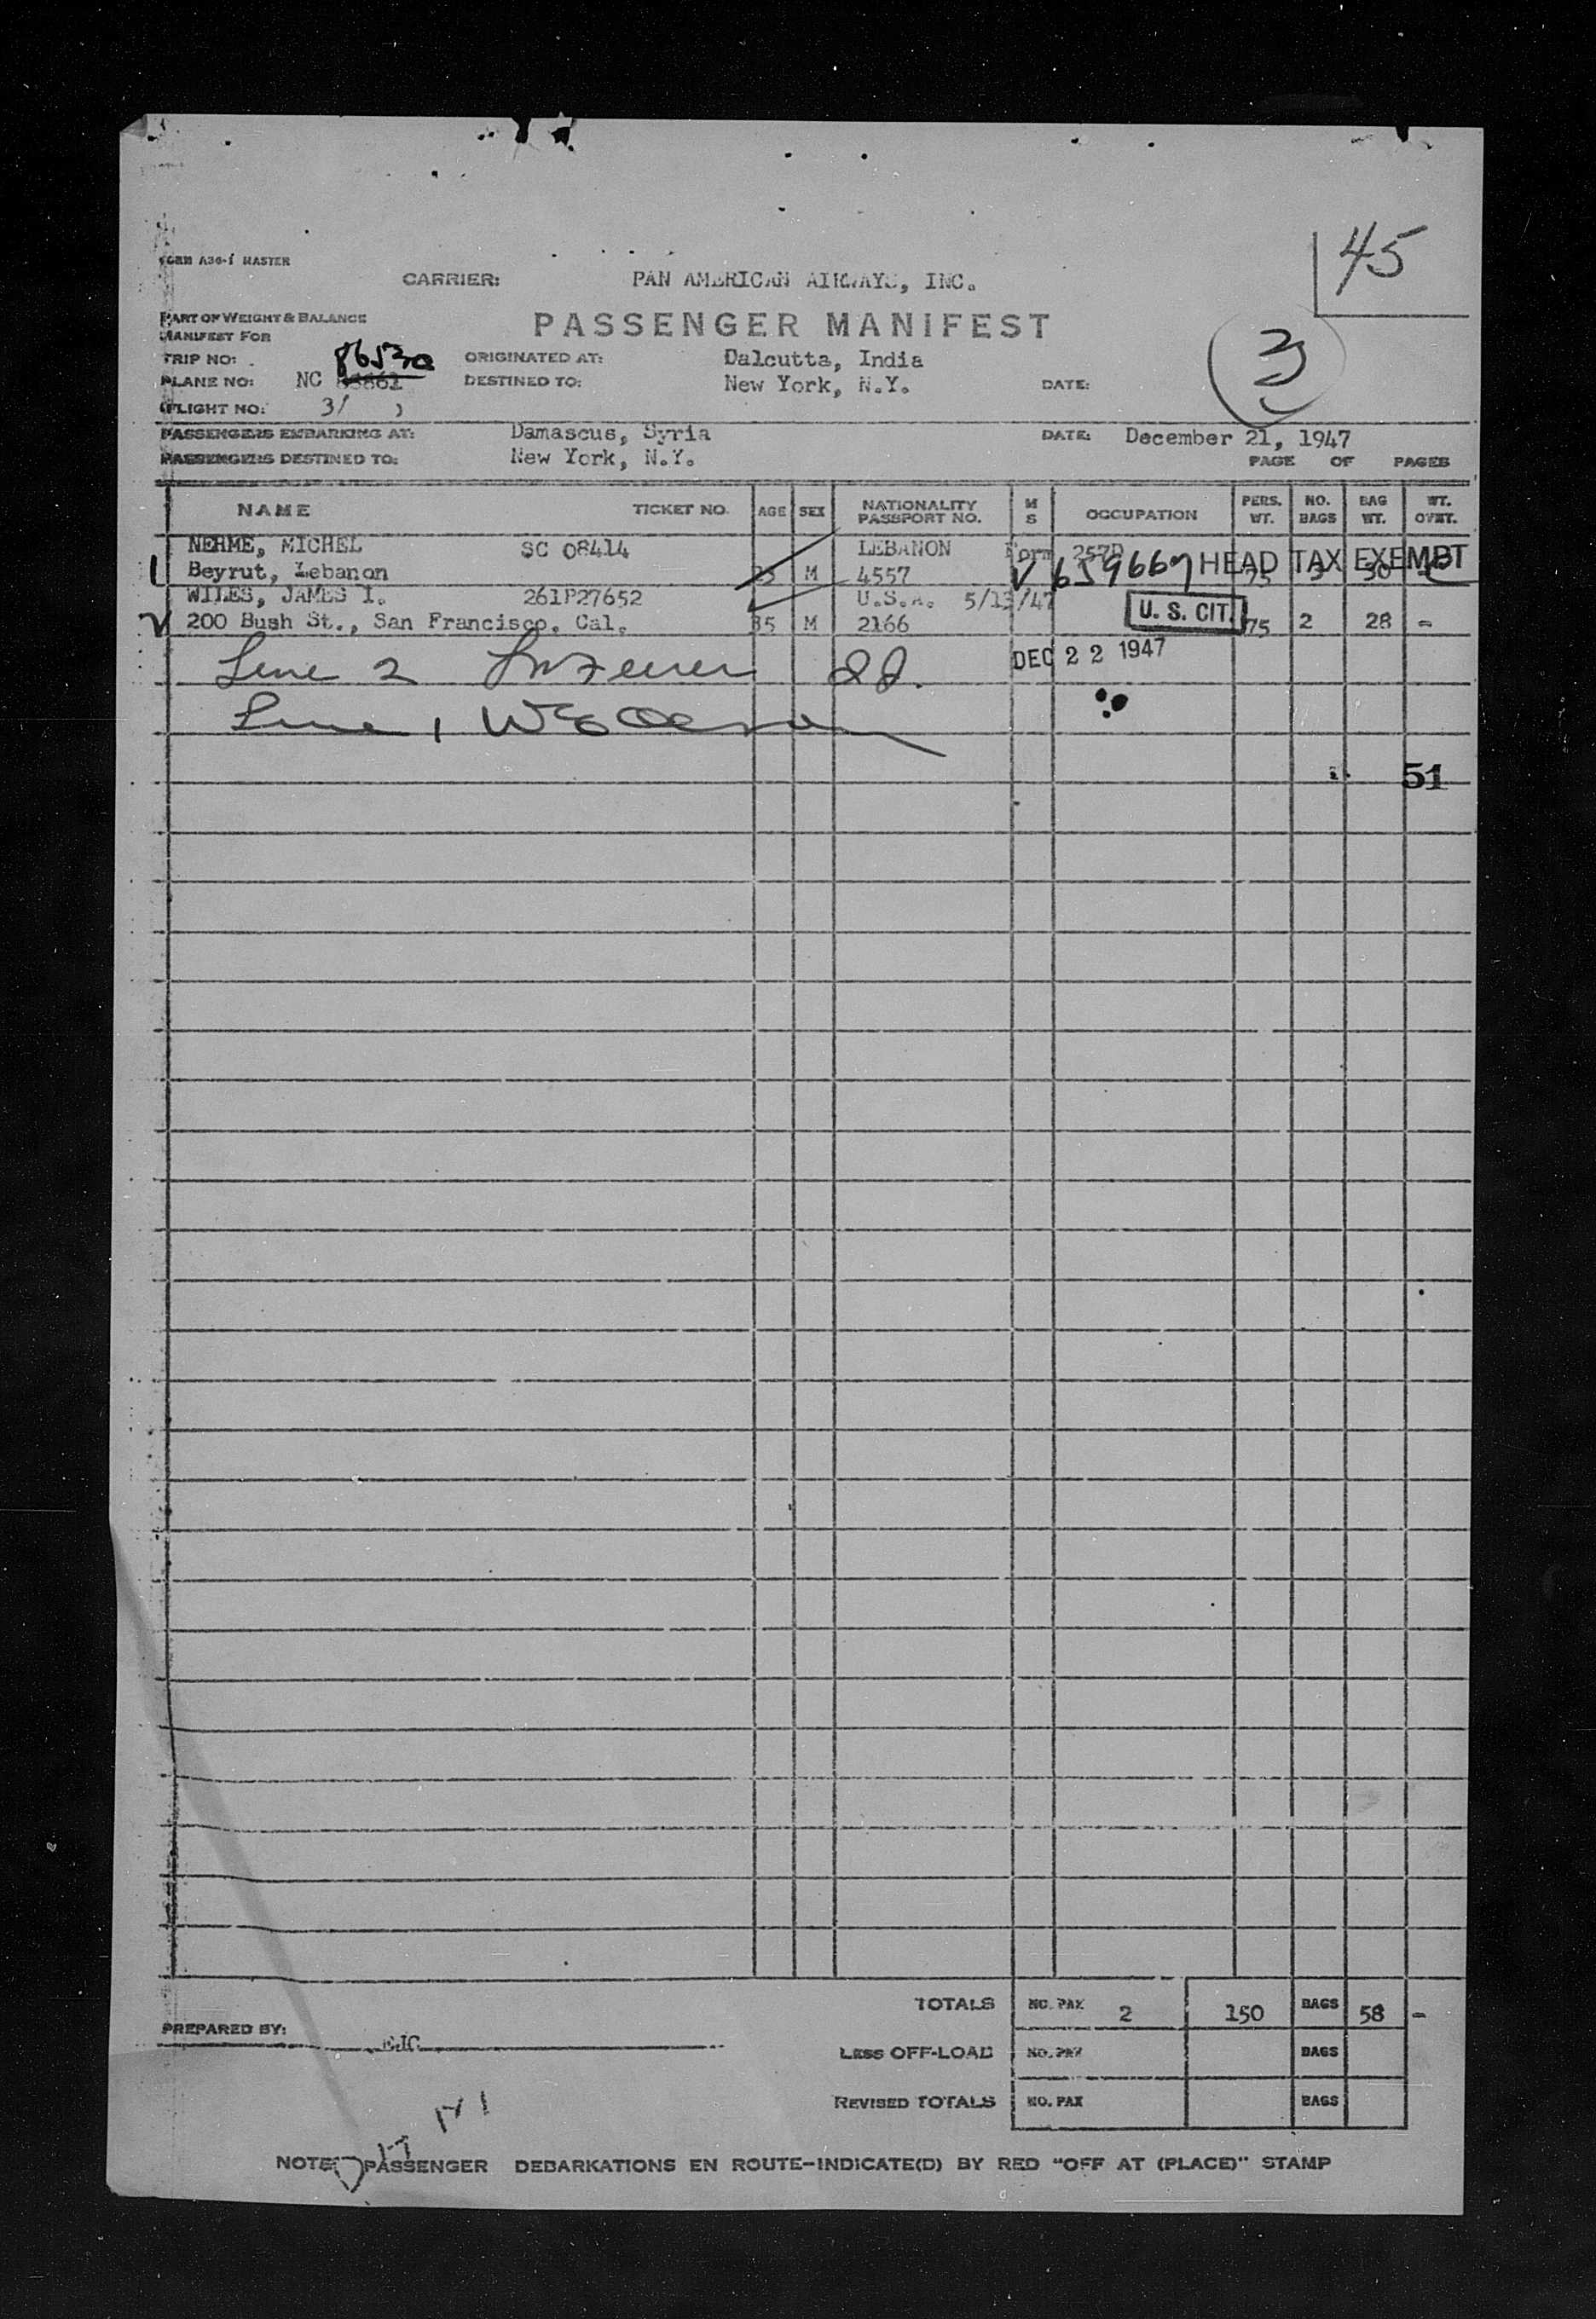 45
FORM A36-1 MASTER
CARRIER: PAN AMERICAN AIRWAYS, INC.
PART OF WEIGHT & BALANCE
MANIFEST FOR
PASSENGER MANIFEST
3
TRIP NO: 86530 ORIGINATED AT: Dalcutta, India
PLANE NO: NC DESTINED TO: New York, N.Y. DATE:
FLIGHT NO: 3/
PASSENGERS EMBARKING AT: Damascus, Syria DATE: December 21, 1947
PASSENGERS DESTINED TO: New York, N.Y. PAGE OF PAGES
NAME TICKET NO. AGE SEX NATIONALITY PASSPORT NO. M S OCCUPATION PERS. WT. NO. BAGS BAG WT. WT. OVRT.
NEHME, MICHEL SC 08414 LEBANON Form 257D
1 Beyrut, Lebanon M 4557 V HEAD TAX EXEMPT 75 3 30
WILES, JAMES I. 261P27652 U.S.A. 5/13/47
2 200 Bush St., San Francisco, Cal. 35 M 2166 U. S. CIT. 75 2 28 -
Line 2 DEC 22 1947
Line 1
51
TOTALS NO. PAX 2 150 BAGS 58 -
PREPARED BY: EJC
LESS OFF-LOAD NO. PAX BAGS
REVISED TOTALS NO. PAX BAGS
NOTE: PASSENGER DEBARKATIONS EN ROUTE-INDICATE(D) BY RED "OFF AT (PLACE)" STAMP